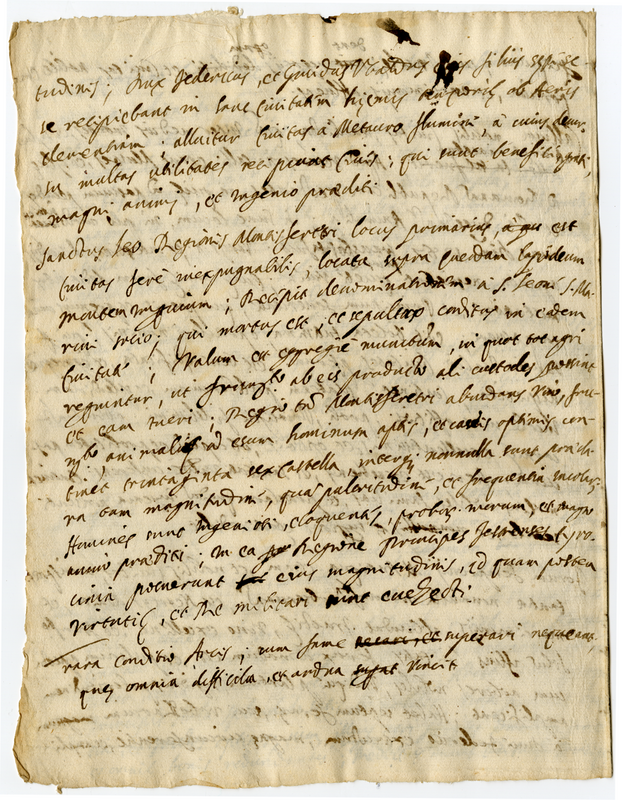 tudinis; Dux Federicus, et Guidus Ubaldus eius filius sepe se
se recipiebant in hanc Civitatem hyemis temporis ob Aeris
clementiam; alluitur Civitas a Metauro flumine, à cuius decur-
su multas utilitates recipiunt Cives; qui sunt benefici, grati,
magni animi, et ingenio præditi
Sanctus Leo Regionis Montisferetri locus primarius, est
Civitas ferè inexpugnabilis, locata supra quendam lapideum
montem ; Recipit denominationem a S. Leone S. Ma-
rini socio; qui mortuus est, et sepultus in eadem
Civitate; Vallum est egregiè munitum, in quo tot agri
reperiuntur, ut frumento ab eis producto ali custodes possint
et eam tueri; Regio Montisferetri abundans Vino, fruc-
tibus, animalibus ad esum hominum aptis, et caseis optimis con-
tinet triginta sex Castella, interque nonnulla sunt præcla-
ra tam magnitudine, quam pulcritudine, et frequentia incolarum
Homines sunt ingeniosi, eloquentes, probi morum, et magno
animo præditi; in ea Regione Principes tyro-
cinia posuerunt eius magnitudinis, ad quam postea
Virtutis, et Re militari sunt euecti
rara conditio Arcis; cum fame superari nequeat,
quæ omnia difficilia, et ardua vincit